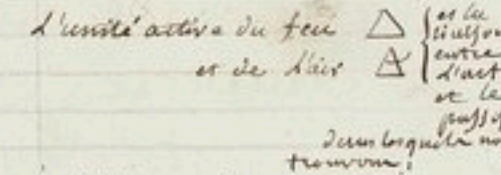 L'unité active du feu △
et de l'air 🜁
et la
entre
l'act
et le
passi
dans lesquels no
trouvons: